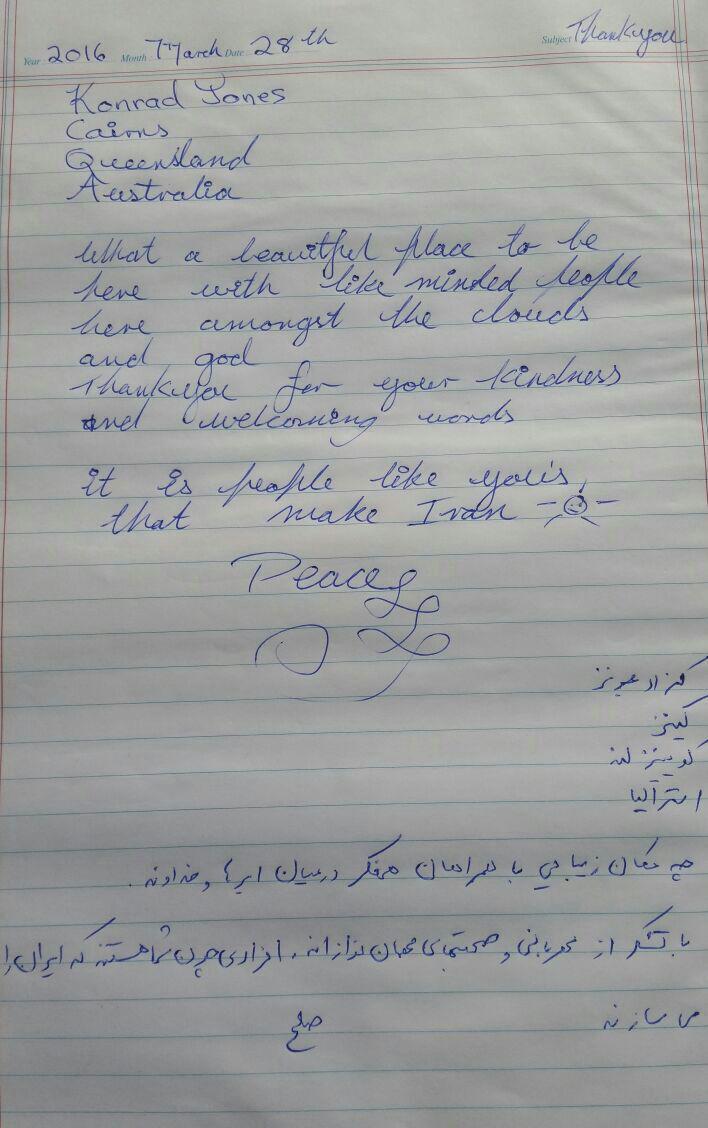 Year 2016 Month March Date 28th Subject Thankyou
Konrad Jones
Cairns
Queensland
Australia
What a beautiful place to be
here with like minded people
here amongst the clouds
and god
Thankyou for your kindness
and welcoming words
it is people like you's,
that make Iran
Peace
کنراد جونز
کینز
کویینزلند
استرالیا
چه مکان زیبایی با همراهان همفکر در میان ابرها و خداوند.
با تشکر از مهربانی و صحبتهای مهمان نوازانه، افرادی چون شما هستند که ایران را
می سازند
صلح